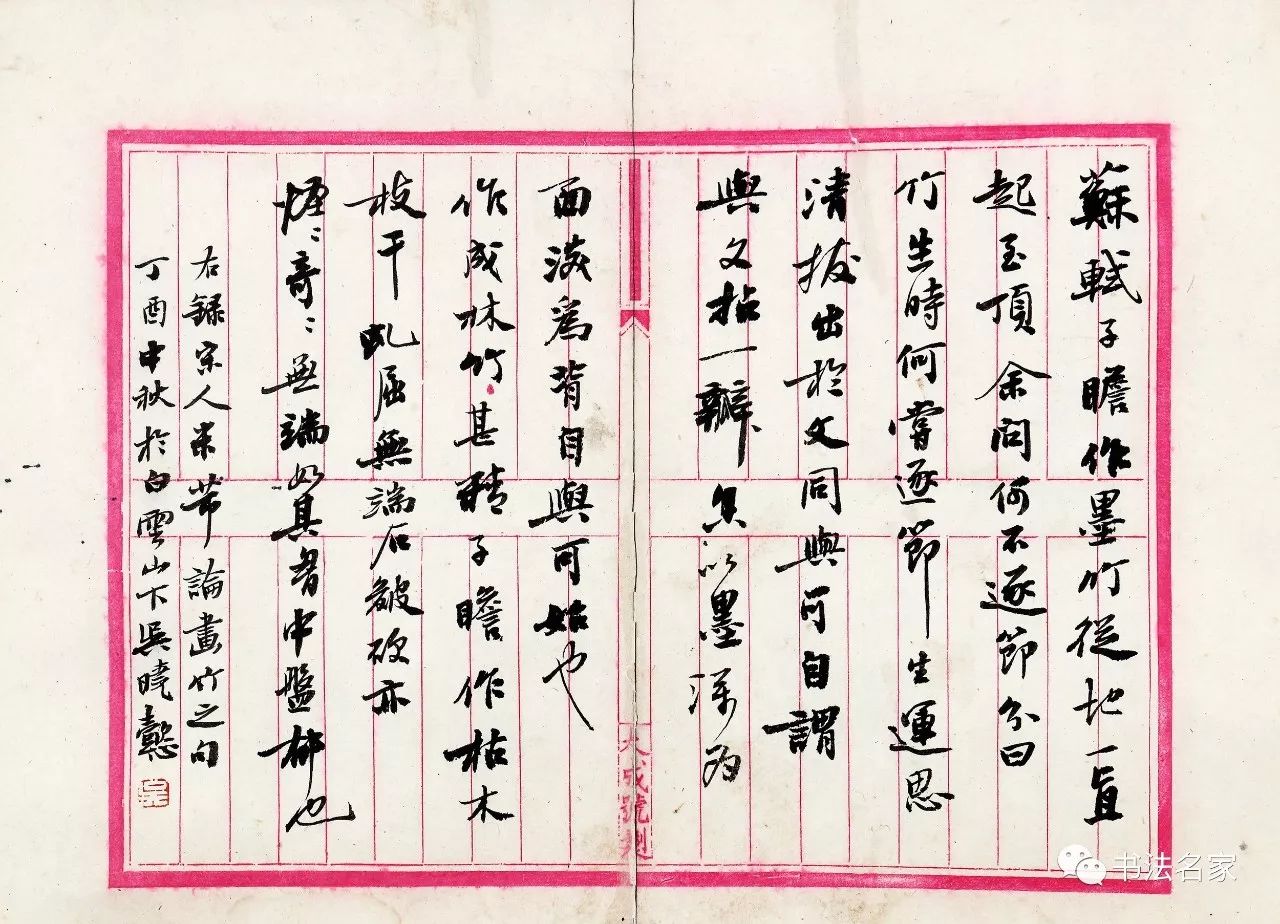 蘇軾子瞻作墨竹從地一直
起至頂余問何不逐節分曰
竹生時何嘗逐節生運思
清拔出於文同與可自謂
與文拈一瓣香以墨深為
面淡為背自與可始也
作成林竹甚精子瞻作枯木
枝干虬屈無端石皴硬亦
怪〻奇〻無端如其胷中盤郁也
右錄宋人米芾論畫竹之句
丁酉中秋於白雲山下吳曉懿
吳
大成號製
书法名家